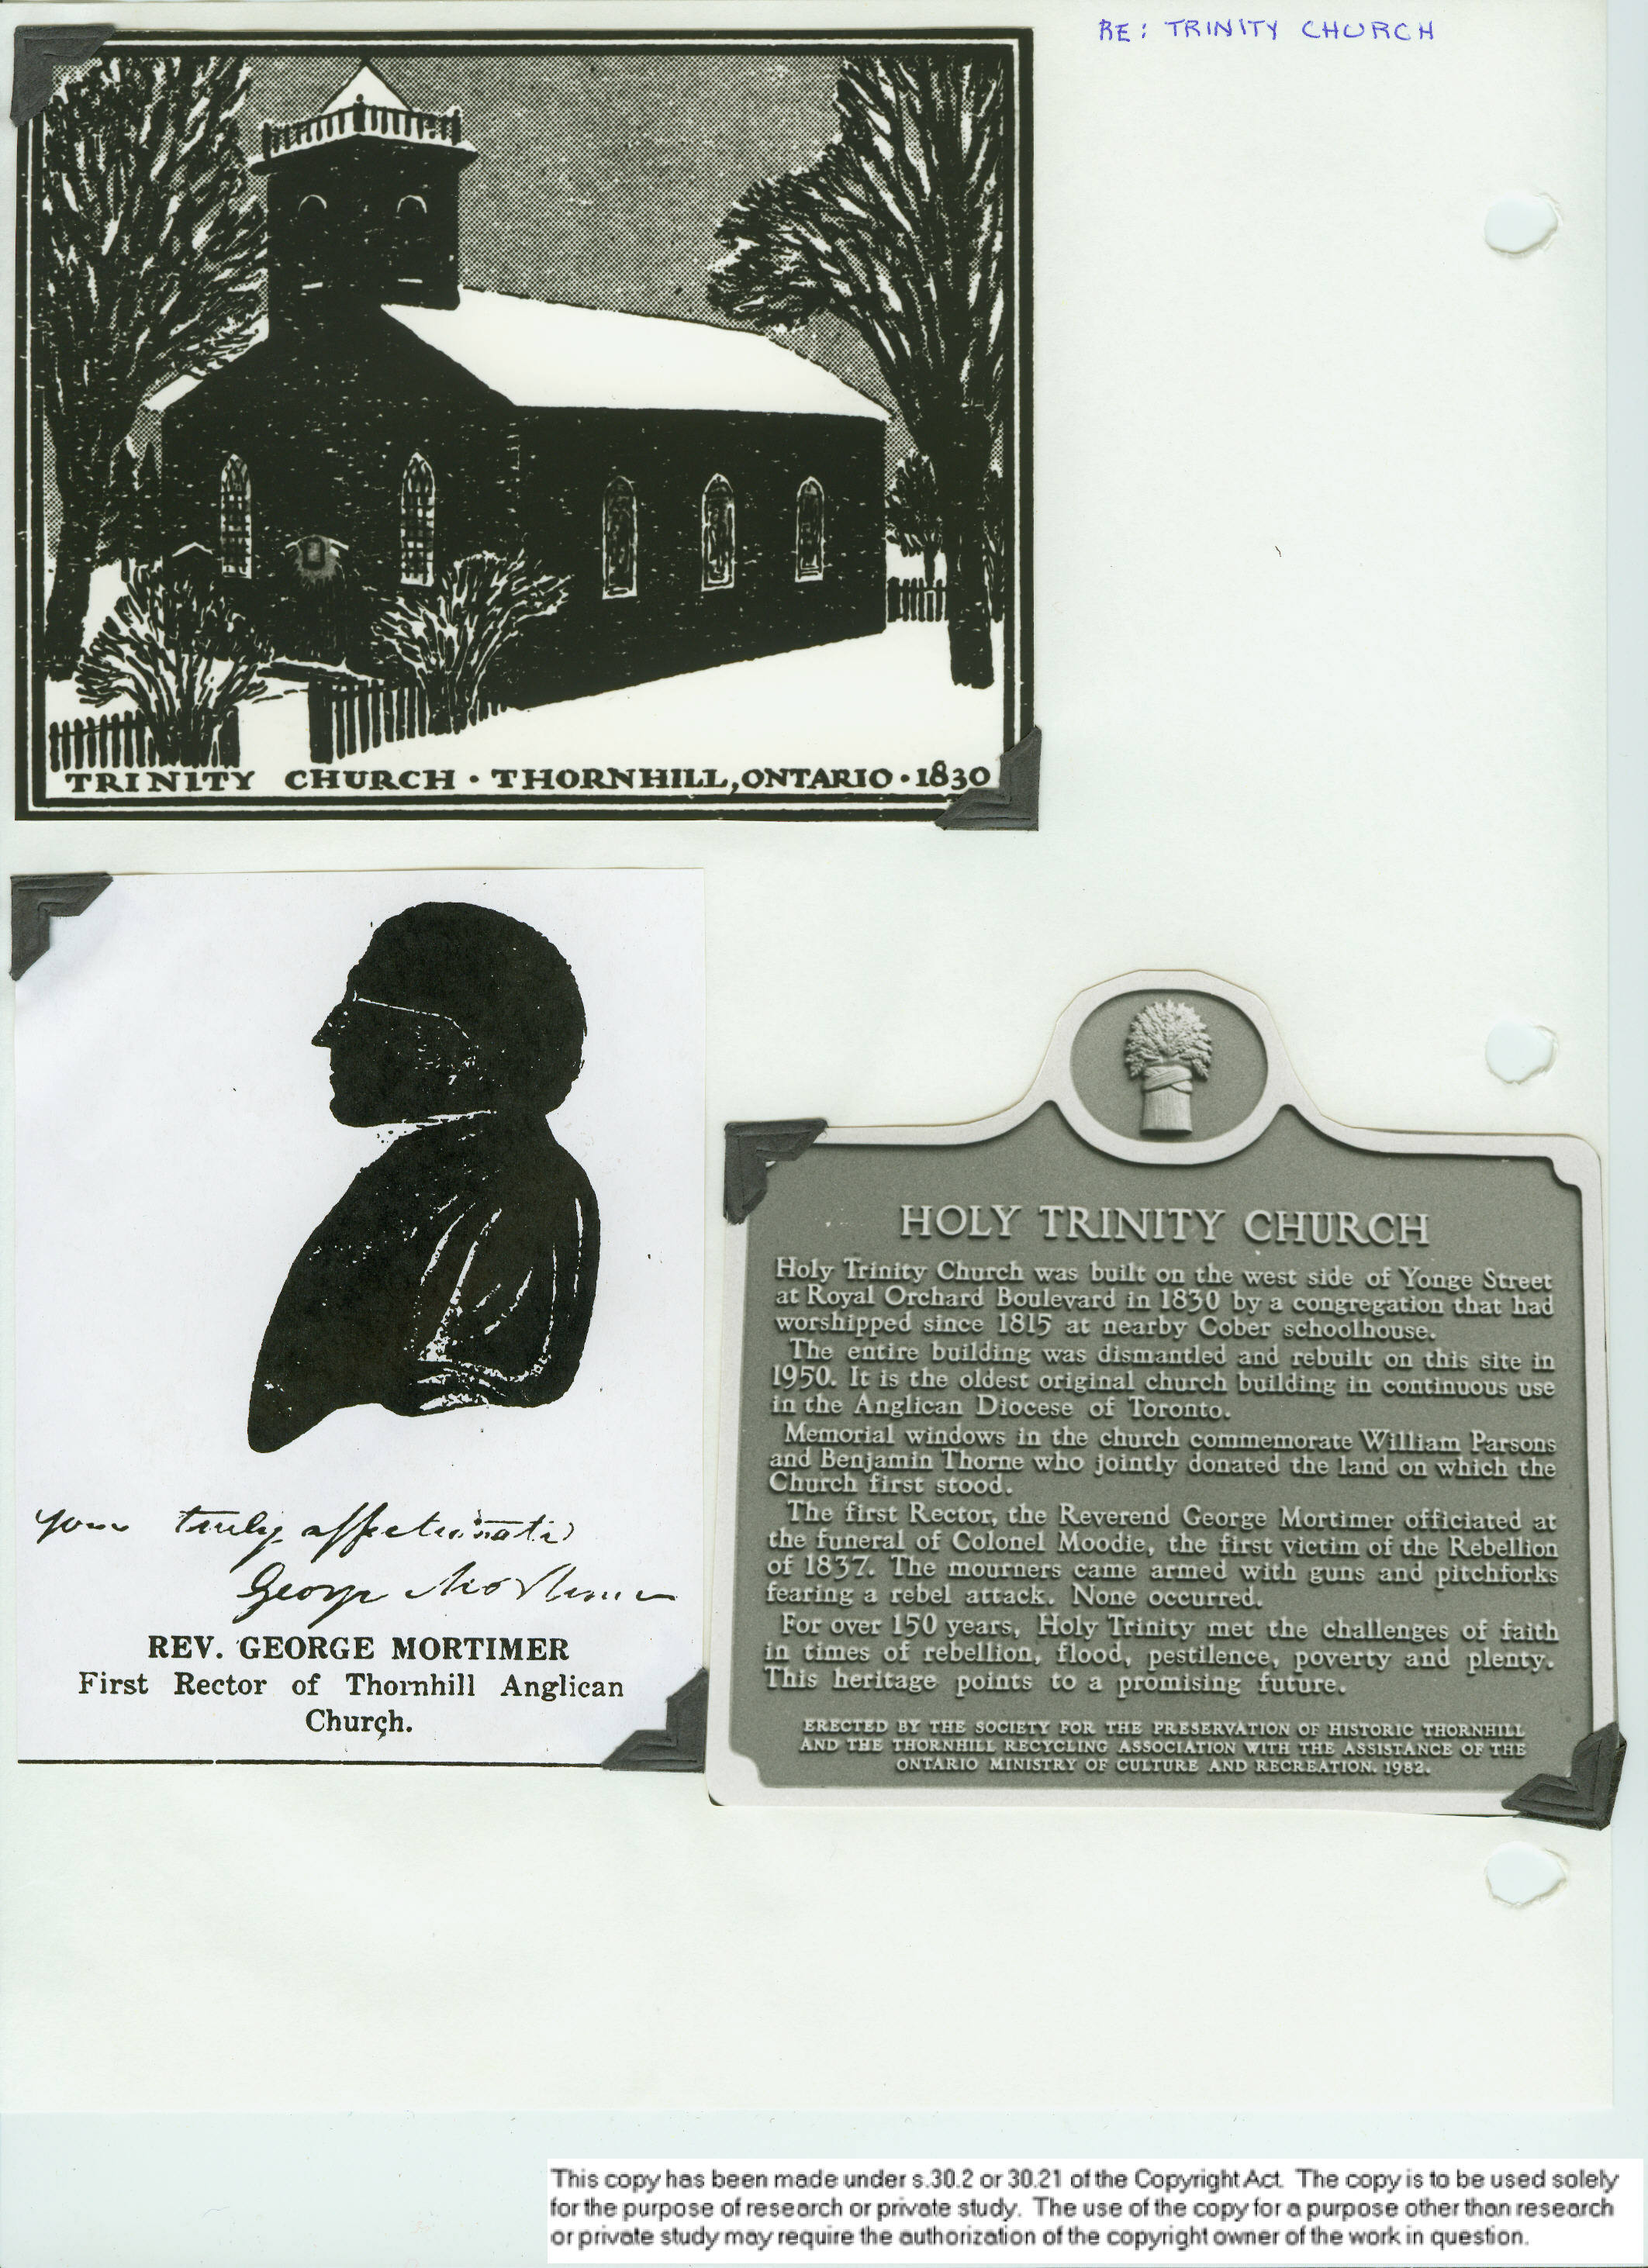 RE: TRINITY CHURCH
TRINITY CHURCH · THORNHILL, ONTARIO · 1830
truly affectionate
George Mortimer
REV. GEORGE MORTIMER
First Rector of Thornhill Anglican
Church.
HOLY TRINITY CHURCH
Holy Trinity Church was built on the west side of Yonge Street
at Royal Orchard Boulevard in 1830 by a congregation that had
worshipped since 1815 at nearby Cober schoolhouse.
The entire building was dismantled and rebuilt on this site in
1950. It is the oldest original church building in continuous use
in the Anglican Diocese of Toronto.
Memorial windows in the church commemorate William Parsons
and Benjamin Thorne who jointly donated the land on which the
Church first stood.
The first Rector, the Reverend George Mortimer officiated at
the funeral of Colonel Moodie, the first victim of the Rebellion
of 1837. The mourners came armed with guns and pitchforks
fearing a rebel attack. None occurred.
For over 150 years, Holy Trinity met the challenges of faith
in times of rebellion, flood, pestilence, poverty and plenty.
This heritage points to a promising future.
ERECTED BY THE SOCIETY FOR THE PRESERVATION OF HISTORIC THORNHILL
AND THE THORNHILL RECYCLING ASSOCIATION WITH THE ASSISTANCE OF THE
ONTARIO MINISTRY OF CULTURE AND RECREATION. 1982.
This copy has been made under s.30.2 or 30.21 of the Copyright Act. The copy is to be used solely
for the purpose of research or private study. The use of the copy for a purpose other than research
or private study may require the authorization of the copyright owner of the work in question.